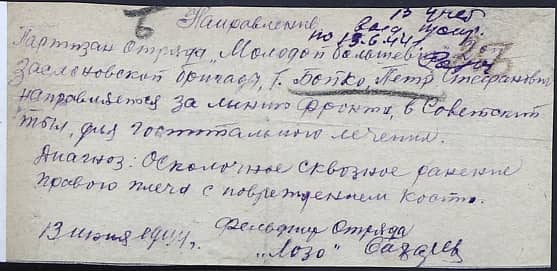 Направление
13 учеб
по 13.6.44
Партизан Отряда „Молодой большевик"
Заслоновской бригады, т. Бойко, Петр Стефанович
направляется за линию фронта, в Советский
тыл, для госпитального лечения.
Диагноз: Осколочное сквозное ранение
правого плеча с повреждением кости.
13 июня 1944 г.
Фельдшер Отряда
„Лозо"